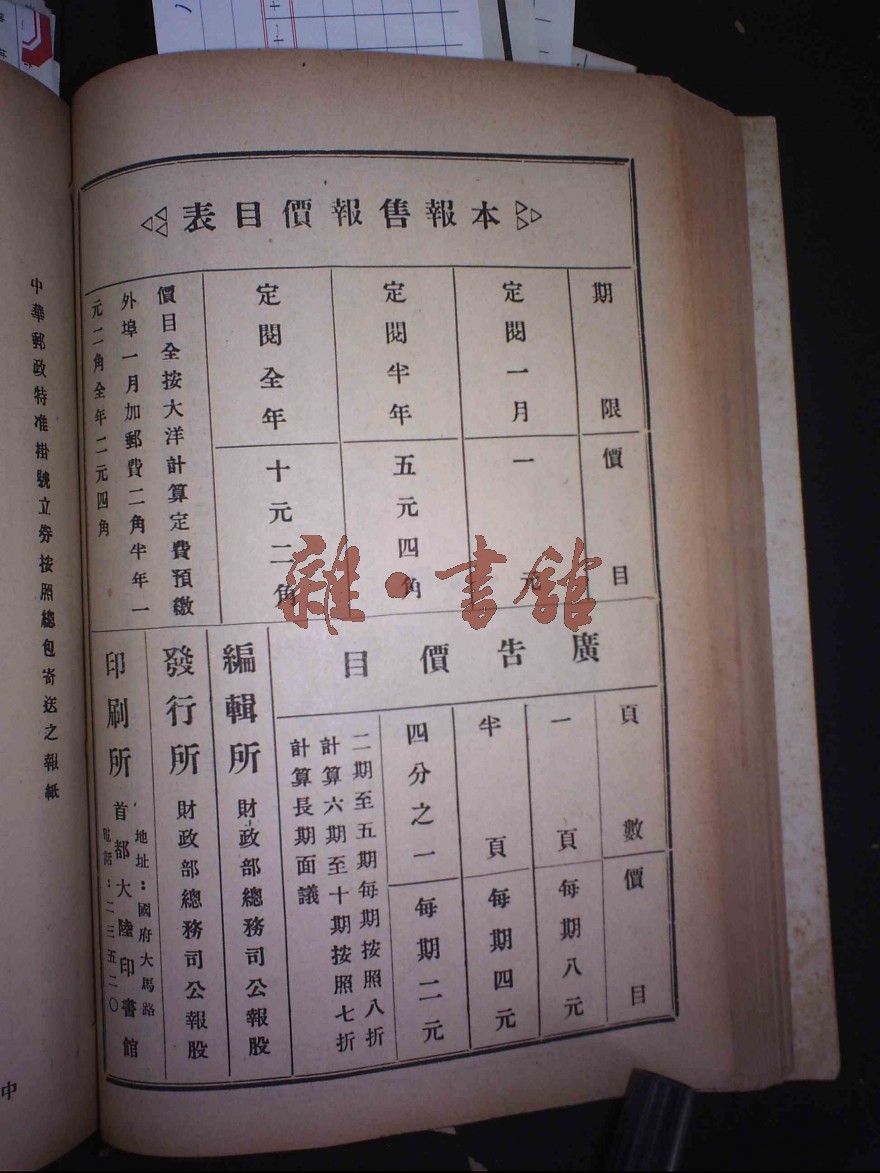 本報售報價目表
期限 價目
定閱一月 一元
定閱半年 五元四角
定閱全年 十元二角
價目全按大洋計算定費預繳
外埠一月加郵費二角半年一
元二角全年二元四角
廣告價目
頁數 價目
一頁 每期八元
半頁 每期四元
四分之一 每期二元
二期至五期每期按照八折
計算六期至十期按照七折
計算長期面議
編輯所 財政部總務司公報股
發行所 財政部總務司公報股
印刷所 首都大陸印書館
地址：國府大馬路
電話：二三五二〇
中華郵政特准掛號立券按照總包寄送之報紙
中
雜·書館